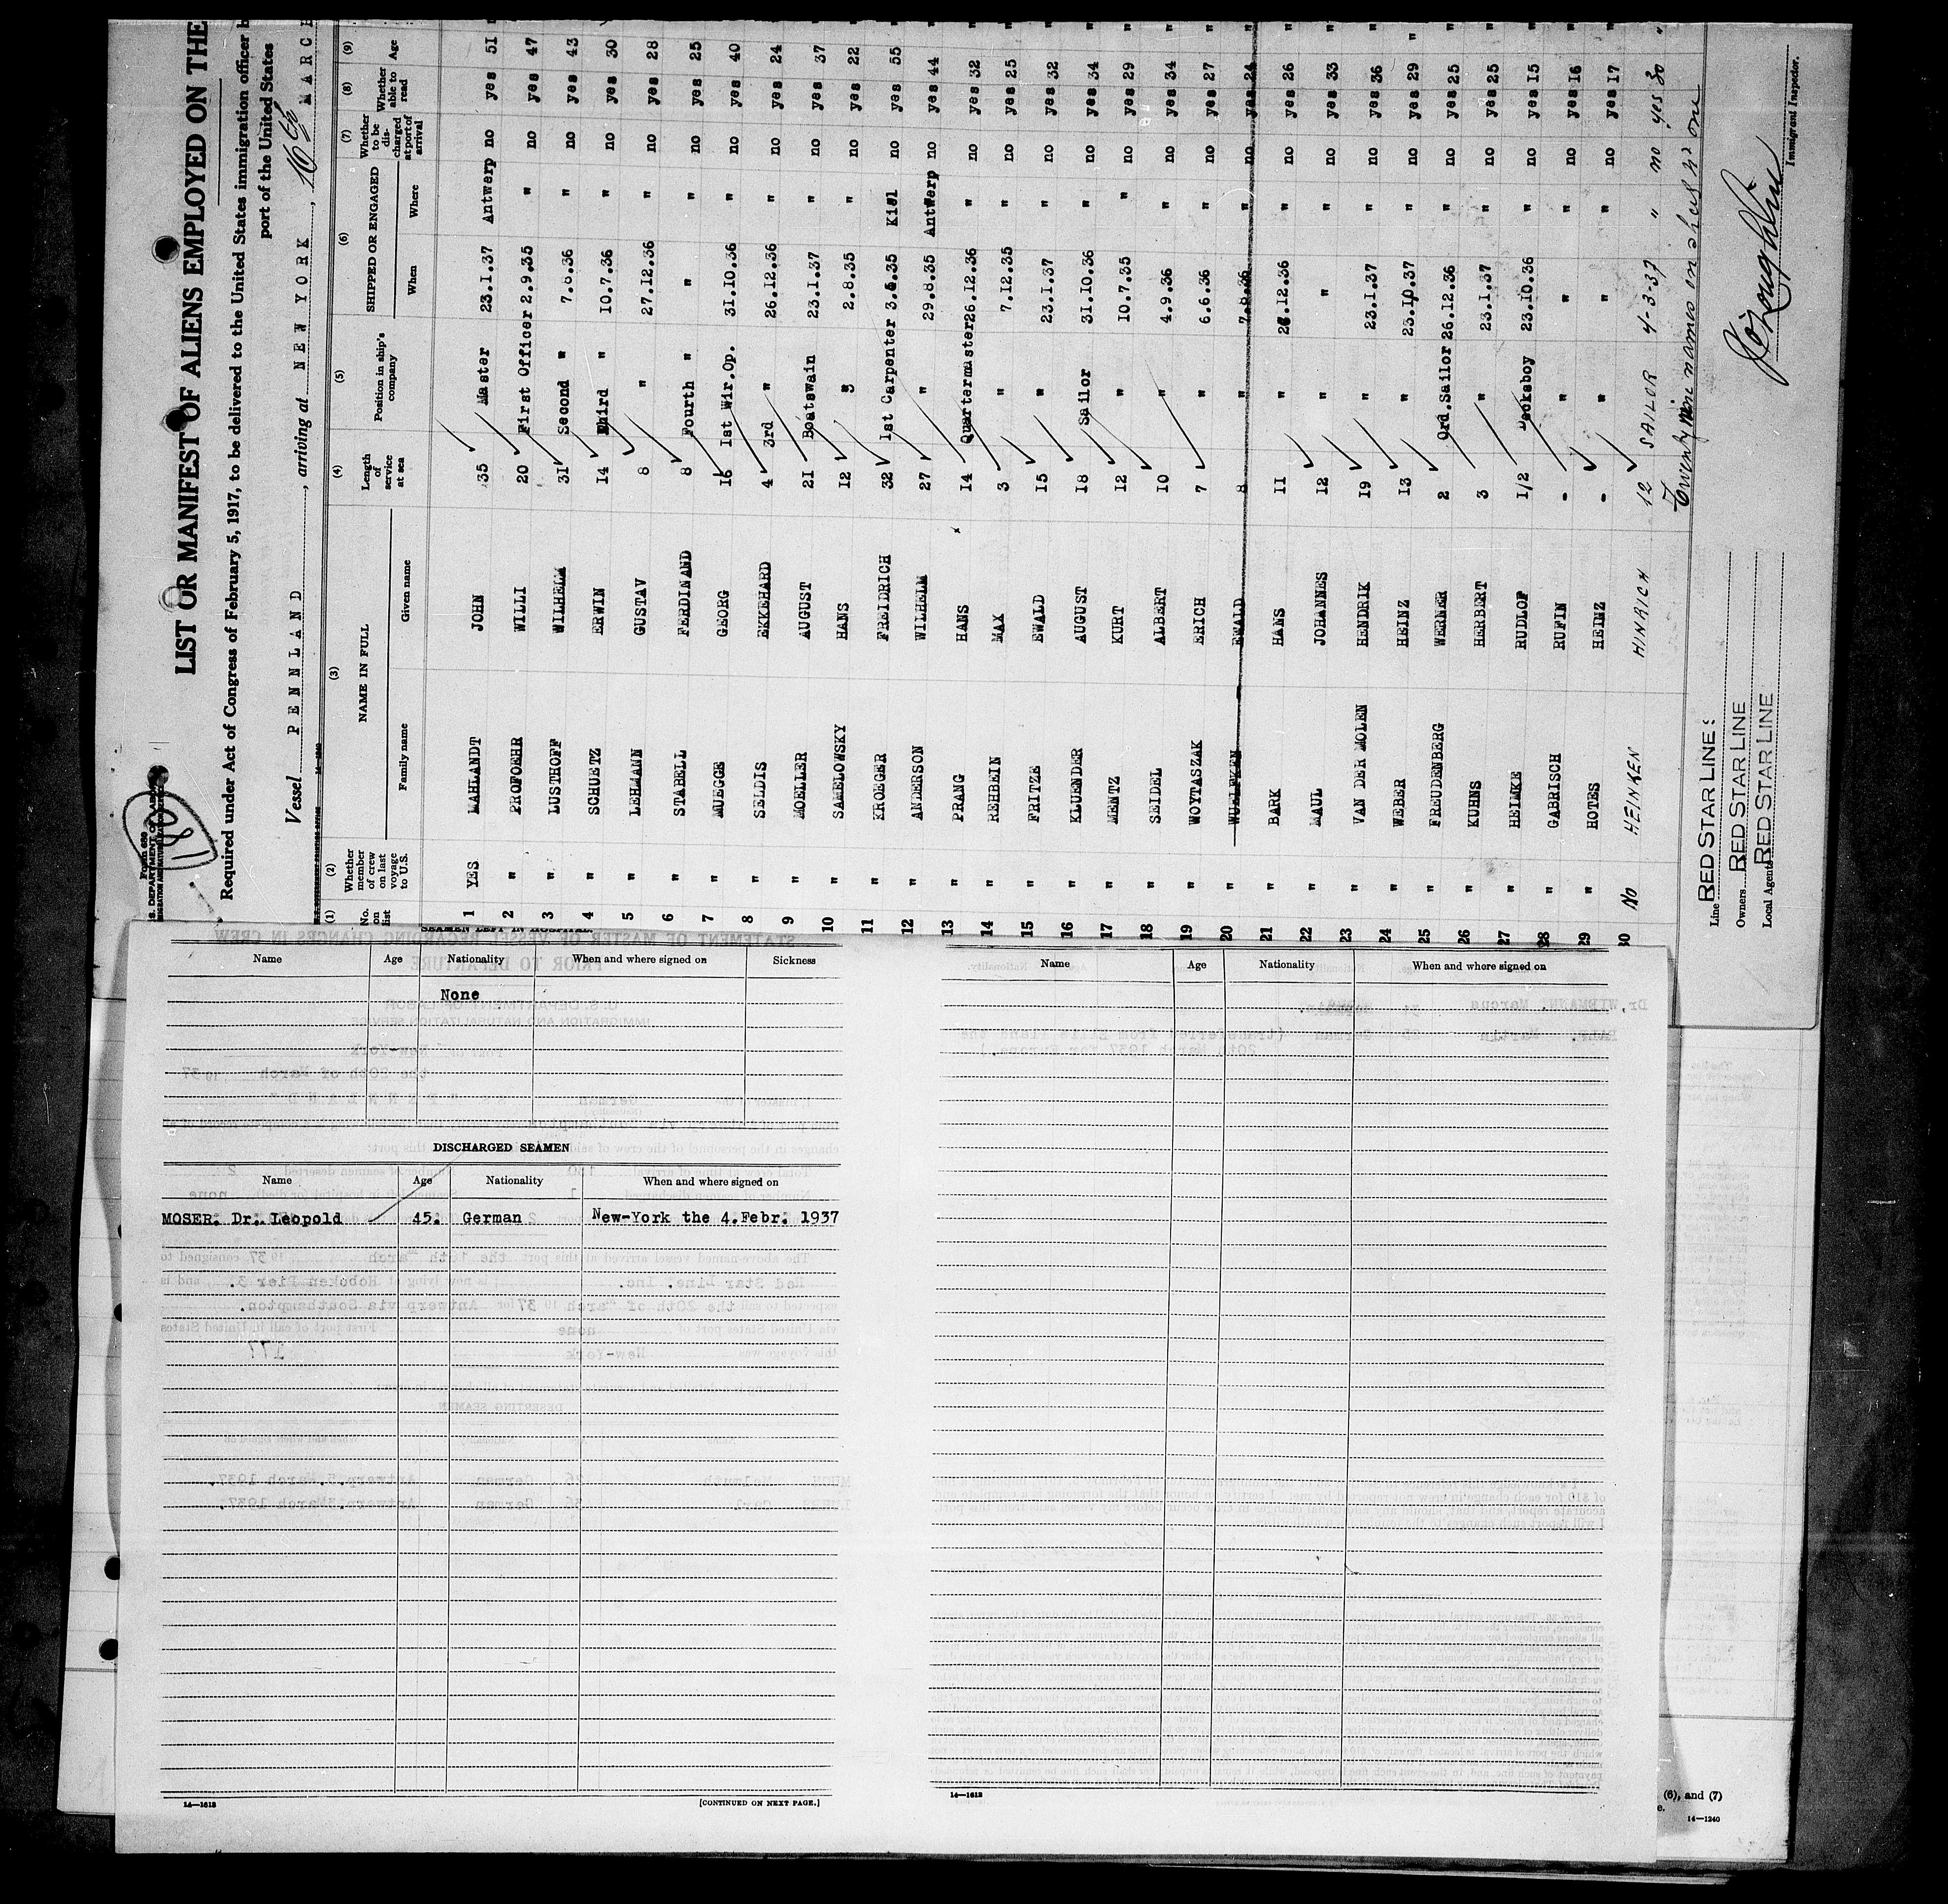 LIST OR MANIFEST OF ALIENS EMPLOYED ON THE
Required under Act of Congress of February 5, 1917, to be delivered to the United States immigration officer
port of the United States
Vessel PENNLAND, arriving at NEW YORK, 16th MARCH
(1) (2) (3) (4) (5) (6) (7) (8) (9)
No. on list
Whether member of crew on last voyage to U.S.
NAME IN FULL
Family name Given name
Length of service at sea
Position in ship's company
SHIPPED OR ENGAGED
When Where
Whether to be discharged at port of arrival
Whether able to read
Age
1 YES MAHLANDT JOHN 35 Master 23.1.37 Antwerp no yes 51
2 " PROFOEHR WILLI 20 First Officer 2.9.35 " no yes 47
3 " LUSTHOFF WILHELM 31 Second " 7.8.36 " no yes 43
4 " SCHUETZ ERWIN 14 Third " 10.7.36 " no yes 30
5 " LEHMANN GUSTAV 8 " 27.12.36 " no yes 28
6 " STABELL FERDINAND 8 Fourth " " " no yes 25
7 " MUEGGE GEORG 16 1st Wir.Op. 31.10.36 " no yes 40
8 " SELDIS EKKEHARD 4 3rd " 26.12.36 " no yes 24
9 " MOELLER AUGUST 21 Boatswain 23.1.37 " no yes 37
10 " SAMELOWSKY HANS 12 " 2.8.35 " no yes 22
11 " KROEGER FREIDRICH 32 1st Carpenter 3.6.35 Kiel no yes 55
12 " ANDERSON WILHELM 27 " 29.8.35 Antwerp no yes 44
13 " PRANG HANS 14 Quartermaster 26.12.36 " no yes 32
14 " REHBEIN MAX 3 " 7.12.35 " no yes 25
15 " FRITZE EWALD 15 " 23.1.37 " no yes 32
16 " KLUENDER AUGUST 18 Sailor 31.10.36 " no yes 34
17 " MENTZ KURT 12 " 10.7.35 " no yes 29
18 " SEIDEL ALBERT 10 " 4.9.36 " no yes 34
19 " WOYTASZAK ERICH 7 " 6.6.36 " no yes 27
20 " WUELFKEN EWALD 8 " 7.8.36 " no yes 24
21 " BARK HANS 11 " 26.12.36 " no yes 26
22 " MAUL JOHANNES 12 " " " no yes 33
23 " VAN DER MOLEN HENDRIK 19 " 23.1.37 " no yes 36
24 " WEBER HEINZ 13 " 23.10.37 " no yes 29
25 " FREUDENBERG WERNER 2 Ord.Sailor 26.12.36 " no yes 25
26 " KUHNS HERBERT 3 " 23.1.37 " no yes 25
27 " HEIMKE RUDLOF 1/2 Decksboy 23.10.36 " no yes 15
28 " GABRISCH RUFIN - " " " no yes 16
29 " HOTES HEINZ - " " " no yes 17
30 No HEINKEN HINRICH 12 SAILOR 4-3-37 " no yes 30
Twenty nine names on sheet no one
Line RED STAR LINE
Owners RED STAR LINE
Local Agents RED STAR LINE
Immigrant Inspector.
SEAMEN LEFT IN HOSPITAL
Name Age Nationality When and where signed on Sickness
None
DISCHARGED SEAMEN
Name Age Nationality When and where signed on
MOSER. Dr. Leopold 45. German New-York the 4.Febr. 1937
14—1612 [CONTINUED ON NEXT PAGE.]
Name Age Nationality When and where signed on
14—1612
(6), and (7)
14—1240